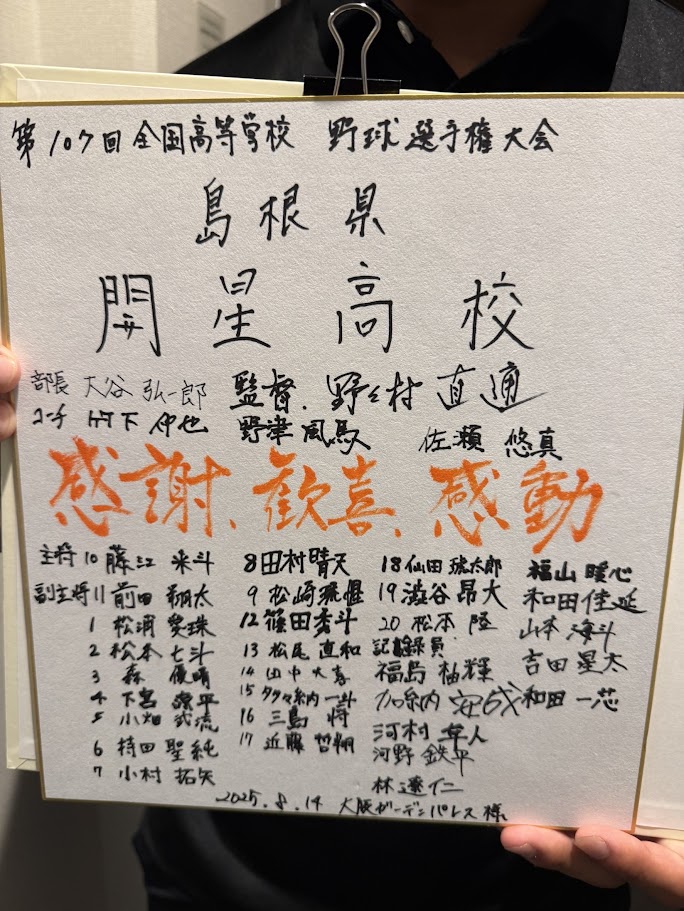 第107回全国高等学校 野球選手権大会
島根県
開星高校
部長 大谷弘一郎 監督.野々村直通
コーチ 竹下伸也 野津風馬 佐瀬悠真
感謝、歓喜、感動
主将10 藤江来斗
副主将11 前田翔太
1 松浦愛珠
2 松本七斗
3 森優晴
4 下宮平
5 小畑流
6 持田聖純
7 小村拓矢
8 田村晴天
9 松崎琉惺
12 篠田秀斗
13 松尾直和
14 田中大喜
15 多々納一斗
16 三島将
17 近藤哲翔
18 仙田琥太郎
19 澁谷昂大
20 松本陸
記録員
福島柚輝
加納
河村隼人
河野鉄平
林遼仁
福山暖心
和田佳延
山本海斗
吉田星太
和田一芯
2025.8.14 大阪ガーデンパレス様